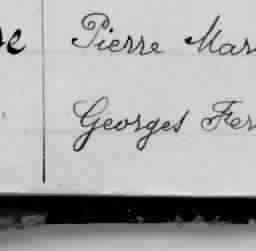 Pierre Mar
Georges Fer